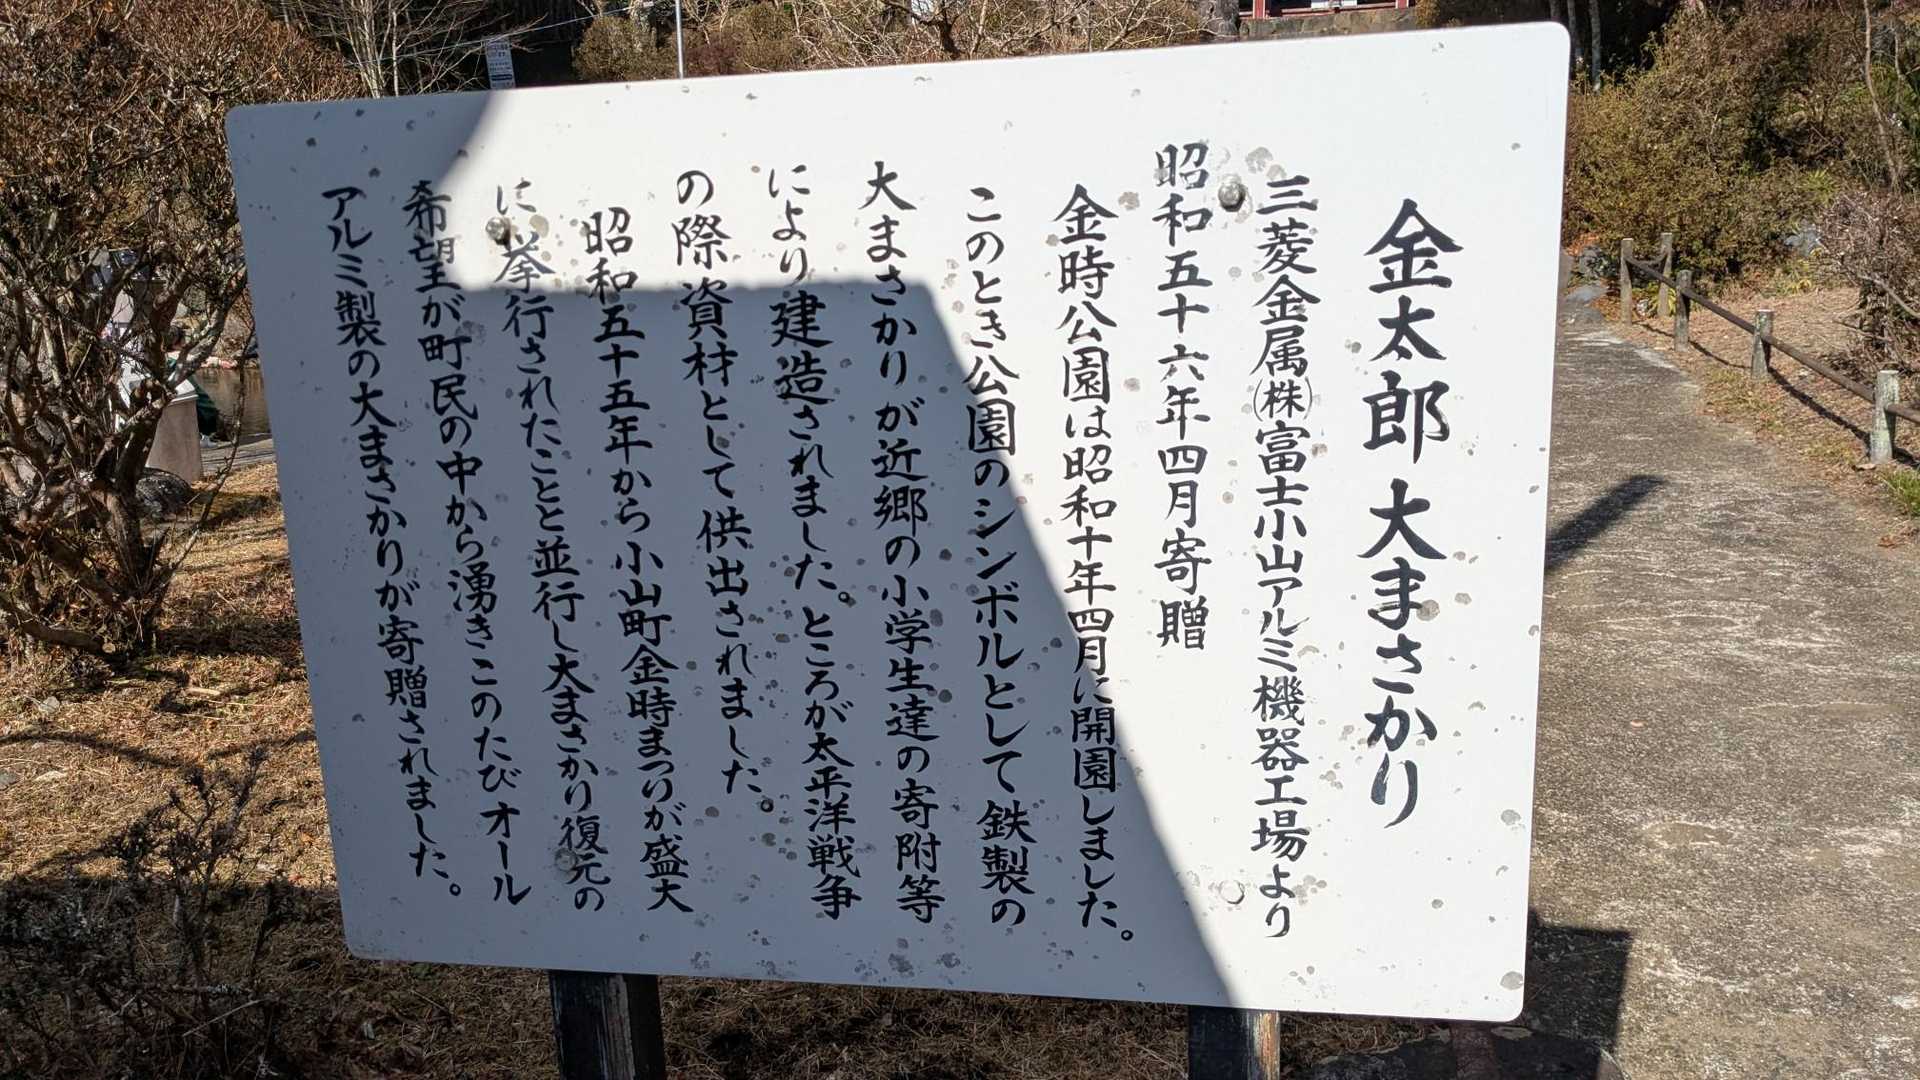 金太郎 大まさかり
三菱金属㈱富士小山アルミ機器工場より
昭和五十六年四月寄贈
金時公園は昭和十年四月に開園しました。
このとき公園のシンボルとして鉄製の
大まさかりが近郷の小学生達の寄附等
により建造されました。ところが太平洋戦争
の際資材として供出されました。
昭和五十五年から小山町金時まつりが盛大
に挙行されたことと並行し大まさかり復元の
希望が町民の中から湧きこのたびオール
アルミ製の大まさかりが寄贈されました。